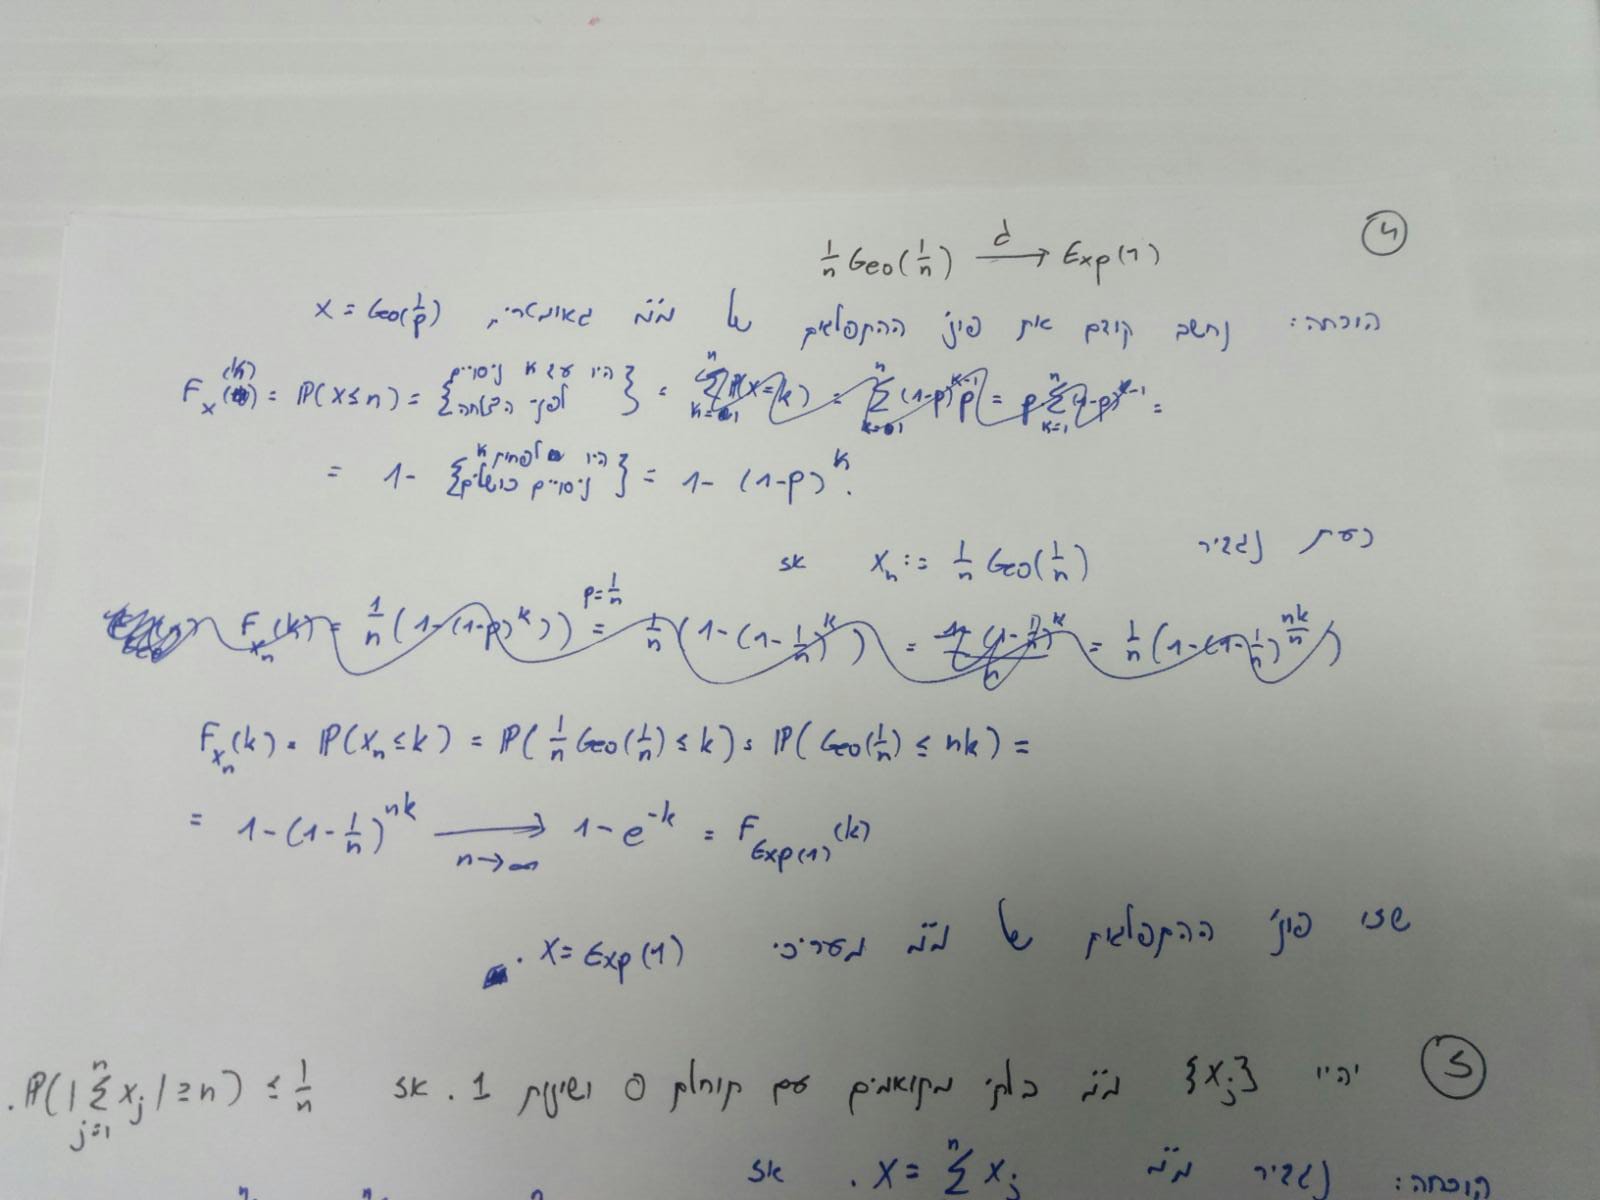 ④ 1/n Geo(1/n) →ᵈ Exp(1)
הוכחה: נחשב קודם את פונק' ההתפלגות של מ"מ גאומטרית X = Geo(1/p)
F_X(k) = ℙ(X≤n) = {היו עד k ניסויים לפני הצלחה} = Σ_{k=1}^n ℙ(X=k) = Σ_{k=1}^n (1-p)^{k-1} p = p Σ_{k=1}^n (1-p)^{k-1} =
= 1 - {היו לפחות k ניסויים כושלים} = 1 - (1-p)^k.
כעת נגדיר X_n := 1/n Geo(1/n) אז
F_{X_n}(k) = 1/n (1-(1-p)^k)) =^{p=1/n} 1/n (1-(1-1/n)^k) = = 1/n (1-(1-1/n)^{nk/n})
F_{X_n}(k) = ℙ(X_n≤k) = ℙ(1/n Geo(1/n) ≤ k) = ℙ(Geo(1/n) ≤ nk) =
= 1-(1-1/n)^{nk} →_{n→∞} 1-e^{-k} = F_{Exp(1)}(k)
שזו פונק' ההתפלגות של מ"מ מעריכי X = Exp(1).
⑤ יהיו {X_j} מ"מ בלתי מתואמים עם תוחלת 0 ושונות 1. אז ℙ(|Σ_{j=1}^n X_j| ≥ n) ≤ 1/n.
הוכחה: נגדיר מ"מ X = Σ^n X_j. אז